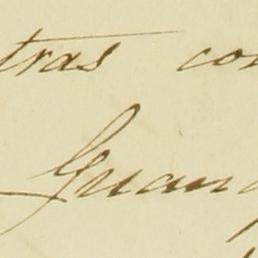 tras con
Guan